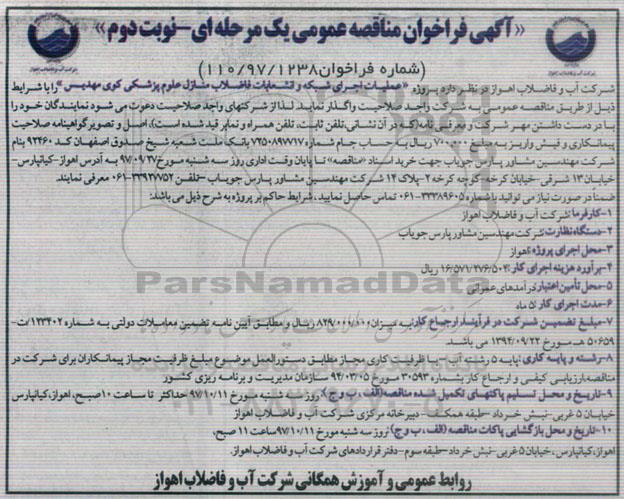 «آگهی فراخوان مناقصه عمومی یک مرحله ای-نوبت دوم»
(شماره فراخوان ۱۱۰/۹۷/۱۲۳۸)
شرکت آب و فاضلاب اهواز در نظر دارد پروژه «عملیات اجرای شبکه و انشعابات فاضلاب منازل علوم پزشکی کوی مهدیس» را با شرایط
ذیل از طریق مناقصه عمومی به شرکت واجد صلاحیت واگذار نماید. لذا از شرکتهای واجد صلاحیت دعوت می شود نمایندگان خود را
با در دست داشتن مهر شرکت و معرفی نامه (که در آن نشانی، تلفن ثابت، تلفن همراه و نمابر قید شده است)، اصل و تصویر گواهینامه صلاحیت
پیمانکاری و فیش واریز به مبلغ ۷۰۰٬۰۰۰ ریال به حساب جام شماره ۷۲۵۰۸۹۷۷۱۷ بانک ملت شعبه شیخ صدوق اصفهان کد ۹۳۴۶۰ بنام
شرکت مهندسین مشاور پارس جویاب جهت خرید اسناد «مناقصه» تا پایان وقت اداری روز سه شنبه مورخ ۹۷/۰۹/۲۷ به آدرس اهواز-کیانپارس-
خیابان ۱۳ شرقی-خیابان کرخه-کوچه کرخه ۲-پلاک ۱۴ شرکت مهندسین مشاور پارس جویاب-تلفن ۳۳۹۲۷۷۵۲-۰۶۱ معرفی نمایند.
ضمنا در صورت نیاز می توانید با شماره ۳۳۳۸۹۶۰۵-۰۶۱ تماس حاصل نمایید، شرایط حاکم بر پروژه به شرح ذیل می باشد:
۱-کارفرما: شرکت آب و فاضلاب اهواز
۲-دستگاه نظارت: شرکت مهندسین مشاور پارس جویاب
۳-محل اجرای پروژه: اهواز
۴-برآورد هزینه اجرای کار: ۱۶/۵۷۱/۲۷۶/۵۰۲ ریال
۵-محل تأمین اعتبار: درآمدهای عمرانی
۶-مدت اجرای کار: ۵ ماه
۷-مبلغ تضمین شرکت در فرآیند ارجاع کار: به میزان ۸۲۹/۰۰۰/۰۰۰ ریال و مطابق آیین نامه تضمین معاملات دولتی به شماره ۱۲۳۴۰۲/ت-
۵۰۶۵۹ هـ مورخ ۱۳۹۴/۰۹/۲۲ می باشد.
۸-رشته و پایه کاری: پایه ۵ رشته آب-با ظرفیت کاری مجاز مطابق دستورالعمل موضوع مبلغ ظرفیت مجاز پیمانکاران برای شرکت در
مناقصه، ارزیابی کیفی و ارجاع کار بشماره ۳۰۵۹۳ مورخ ۹۴/۰۳/۰۵ سازمان مدیریت و برنامه ریزی کشور
۹-تاریخ و محل تسلیم پاکتهای تکمیل شده مناقصه (الف، ب و ج): روز سه شنبه مورخ ۹۷/۱۰/۱۱ حداکثر تا ساعت ۱۰ صبح، اهواز، کیانپارس
خیابان ۵ غربی-نبش خرداد-طبقه همکف-دبیرخانه مرکزی شرکت آب و فاضلاب اهواز
۱۰-تاریخ و محل بازگشایی پاکات مناقصه (الف، ب و ج): روز سه شنبه مورخ ۹۷/۱۰/۱۱ ساعت ۱۱ صبح،
اهواز، کیانپارس، خیابان ۵ غربی-نبش خرداد-طبقه سوم-دفتر قراردادهای شرکت آب و فاضلاب اهواز.
روابط عمومی و آموزش همگانی شرکت آب و فاضلاب اهواز
ParsNamadData